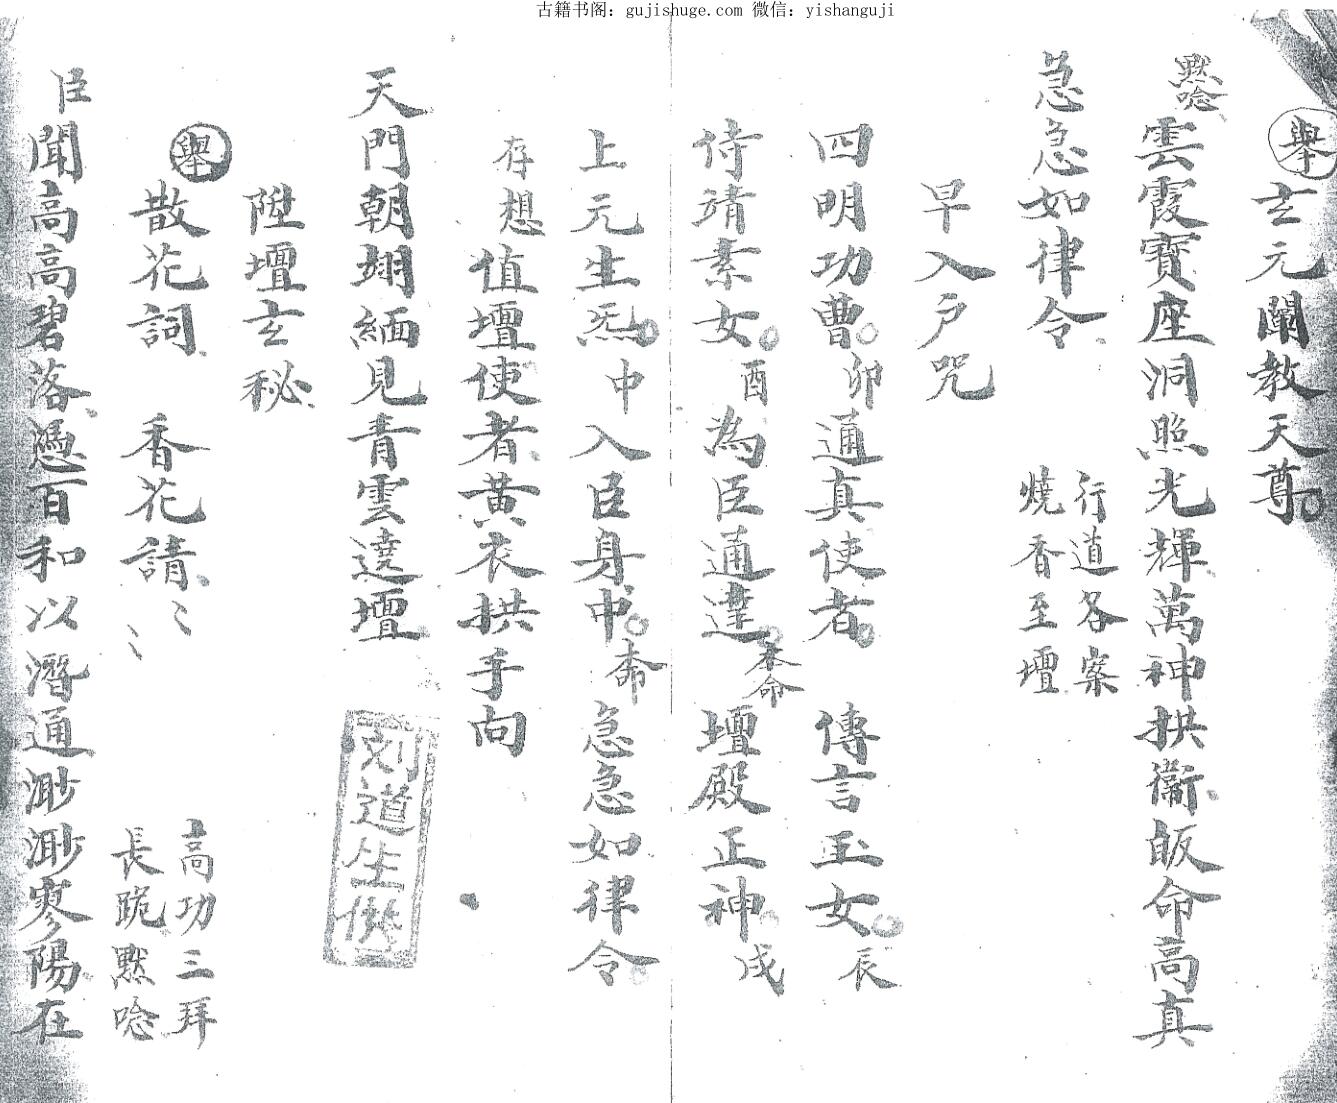 古籍书阁: gujishuge.com 微信: yishanguji
舉 玄元闡教天尊
默唸 雲霞寳座洞照光輝萬神拱衞皈命高真
急急如律令 行道各案
燒香至壇
早入户咒
四明功曹卯 通真使者 傳言玉女辰
侍靖素女酉 為臣通達本命 壇殿正神戌
上元生炁中入臣身中本命 急急如律令
存想 值壇使者黄衣拱手向
天門朝翊緬見青雲遶壇
刘道生
陞壇玄秘
舉 散花詞 香花請 高功三拜
長跪默唸
臣聞高高碧落憑百和以潛通渺渺寥陽在